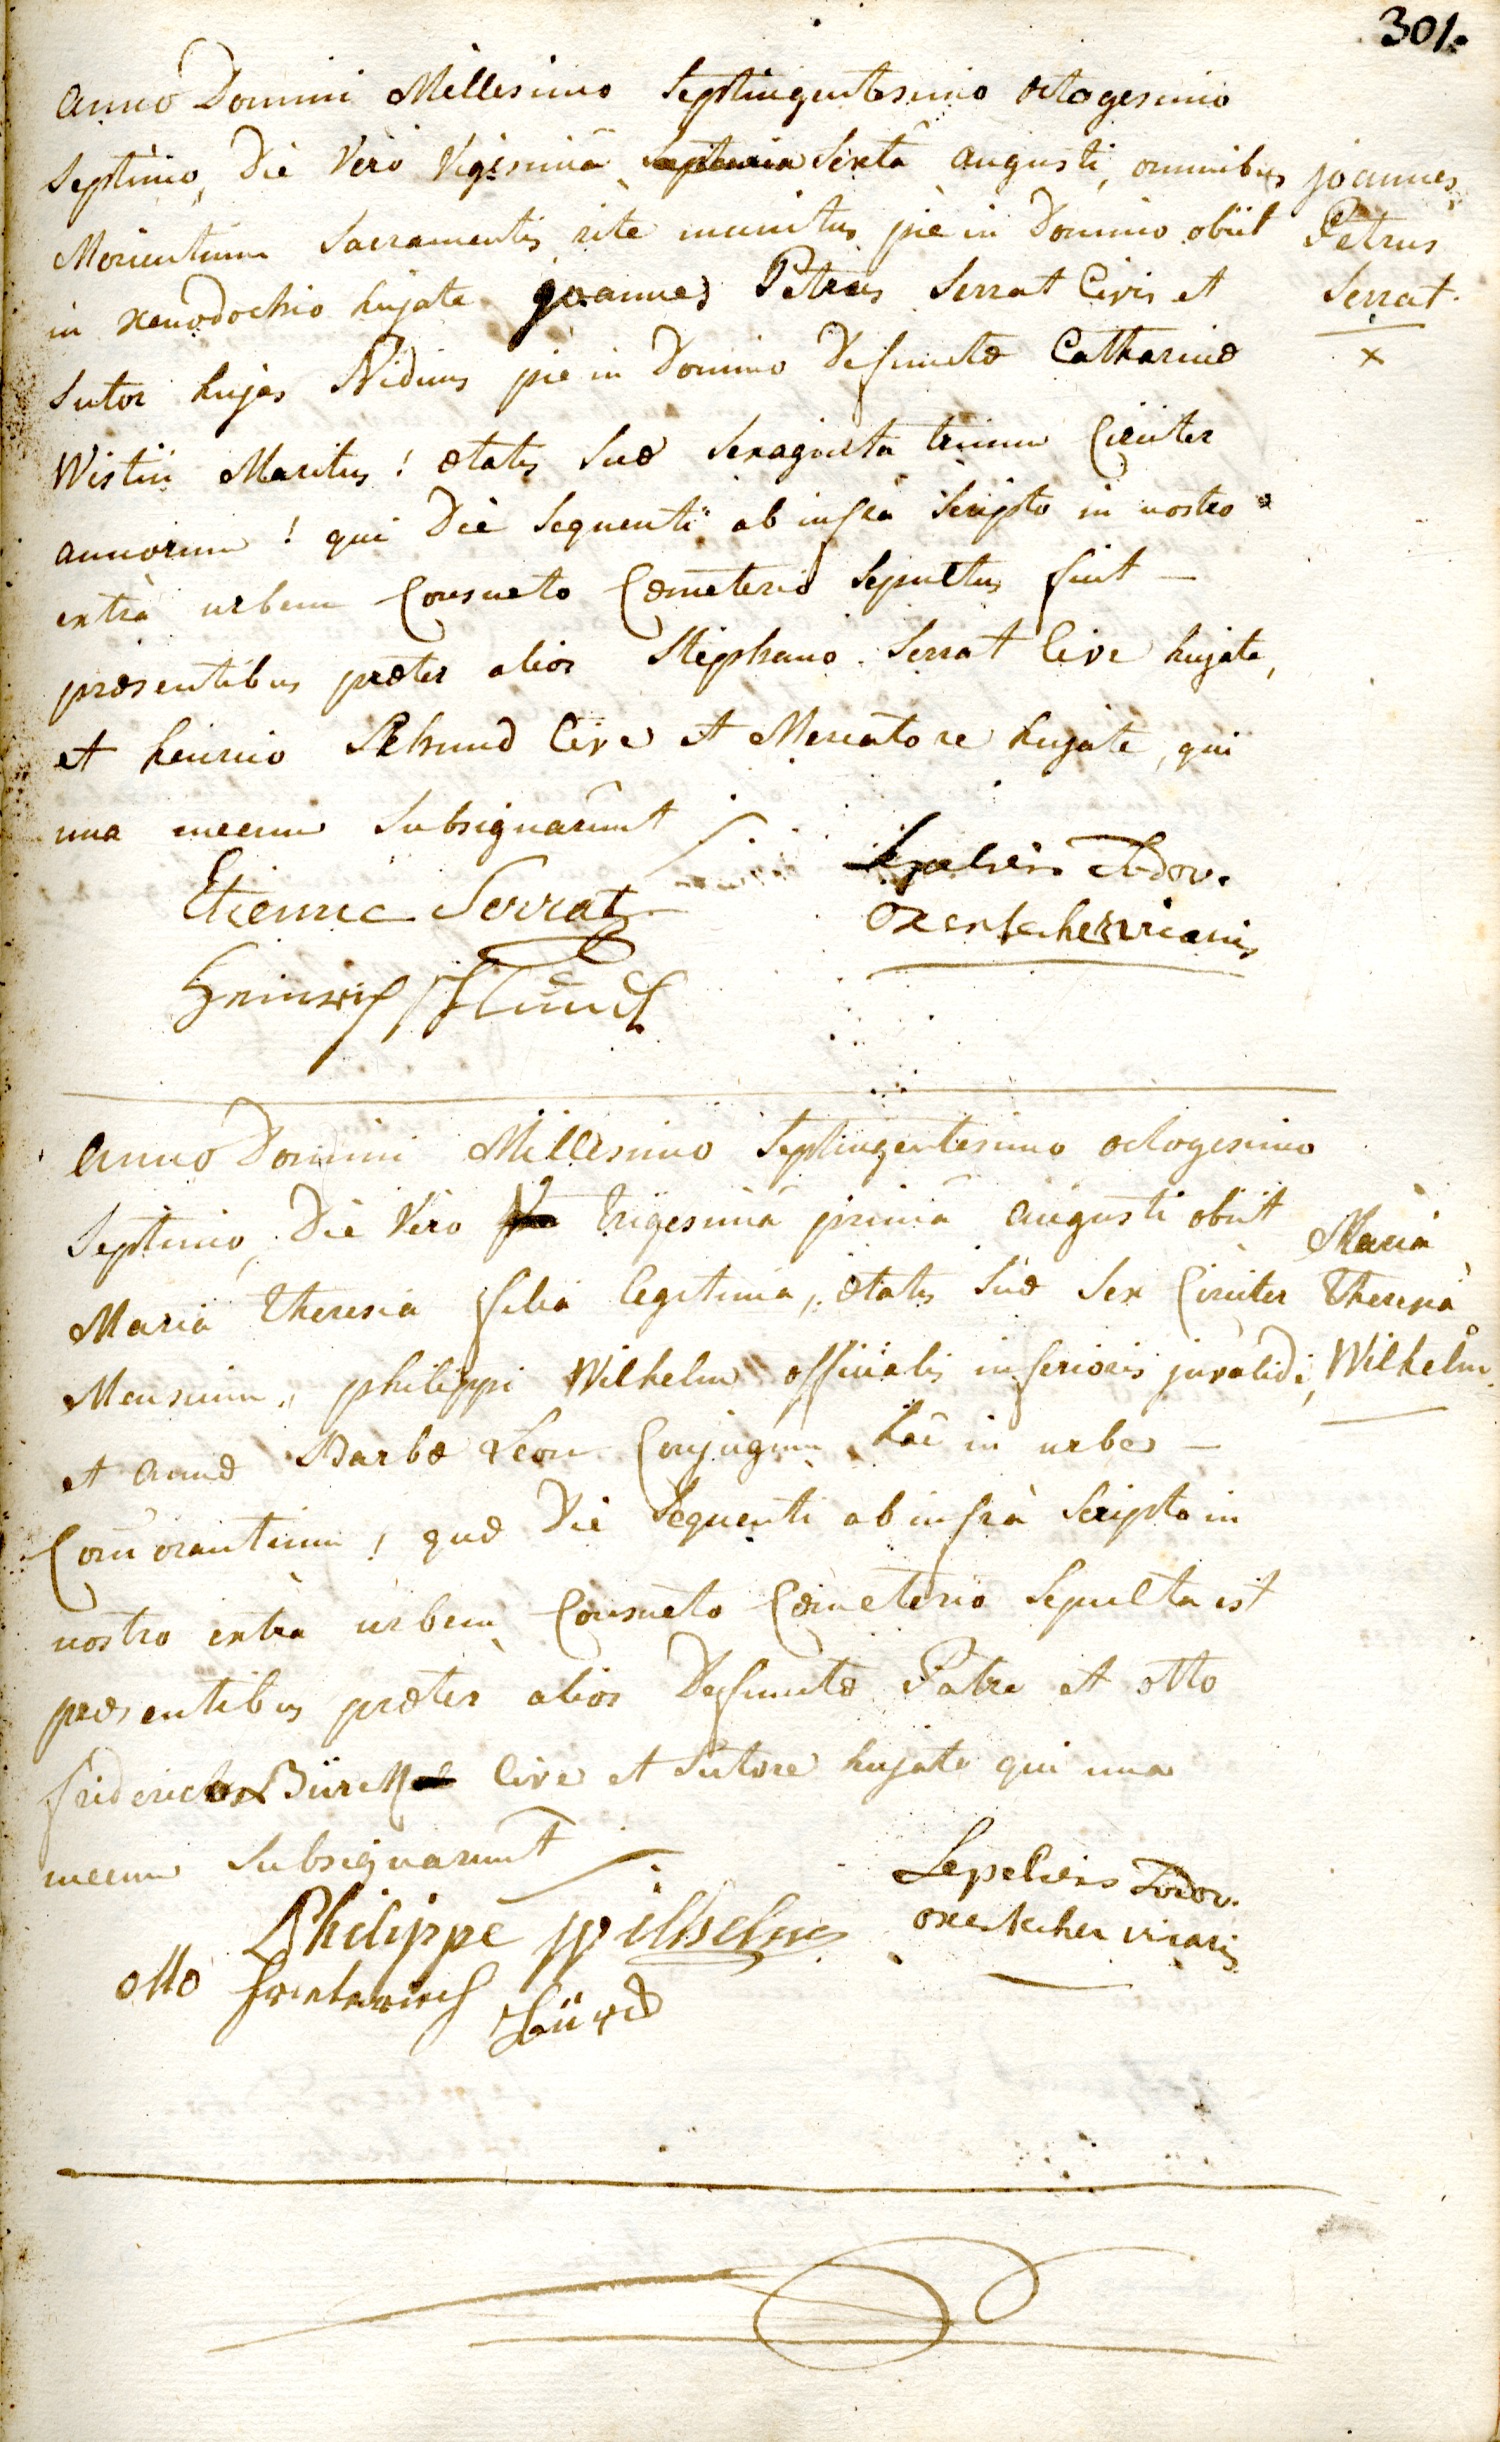 301.
Anno Domini Millesimo Septingentesimo octogesimo
Septimo, Die Vero Vigesimâ Sextâ augusti, omnibus
Morientium Sacramentis ritè munitus piè in Domino obiit
in xenodochio hujate joannes Petrus Serrat Civis et
Sutor hujas Viduus piè in Domino Defunctæ Catharinæ
Wistin Maritus! ætatis Suæ Sexaginta trium Circiter
annorum! qui Die Sequenti ab infra Scripto in nostro
extrà urbem Consueto Cœmeterio Sepultus fuit —
præsentibus præter alios Stephano Serrat Cive hujate,
et henrico Cive et Mercatore hujate, qui
una mecum Subsignarunt
joannes
Petrus
Serrat.
x
Etienne Serrat
Heinrich
Sepeliens
vicarius
Anno Domini Millesimo Septingentesimo octogesimo
Septimo, Die Vero trigesimâ primâ augusti obiit
Maria Theresia filia legitima, ætatis Suæ Sex Circiter
Mensium, philippi Wilhelm officialis inferioris invalidi,
et annæ Barbæ Leon Conjugum hâc in urbe —
Com̄orantium! quæ Die Sequenti ab infrà Scripto in
nostro extra urbem Consueto Cœmeterio Sepulta est
præsentibus præter alios Defunctæ Patre et otto
friderich Bürck Cive et Sutore hujate qui una
mecum Subsignarunt
Maria
Theresia
Wilhelm
Philippe Wilhelm
otto Friederich Bürck
Sepeliens
vicarius